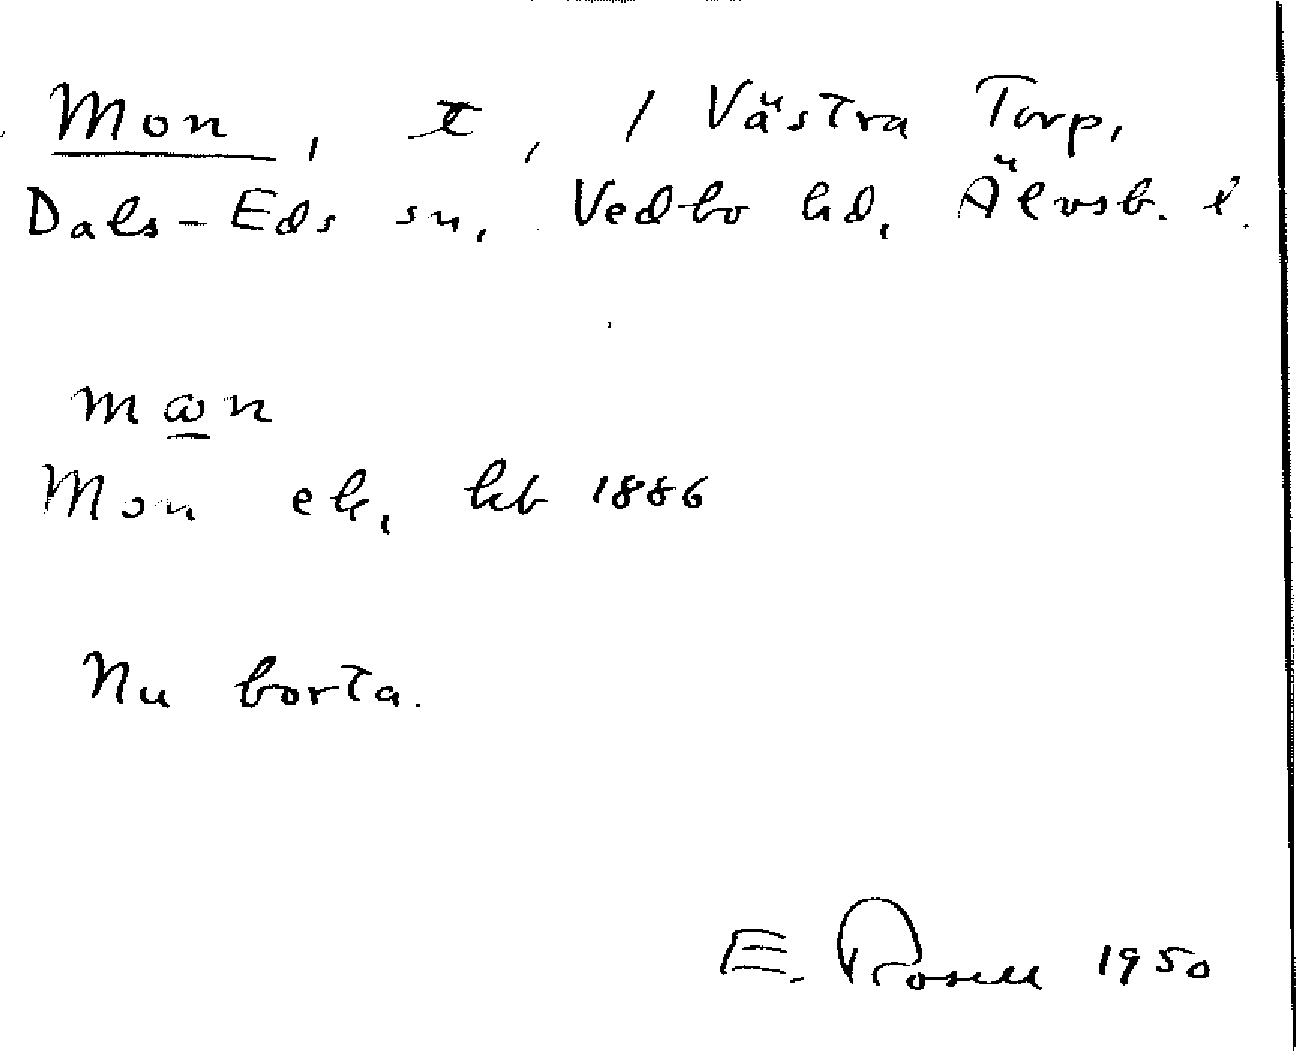 Mon, t, / Västra Torp,
Dals-Eds sn, Vedbo hd, Älvsb. l.
mωn
Mon ek, kb 1886
Nu borta.
E. Rosell 1950